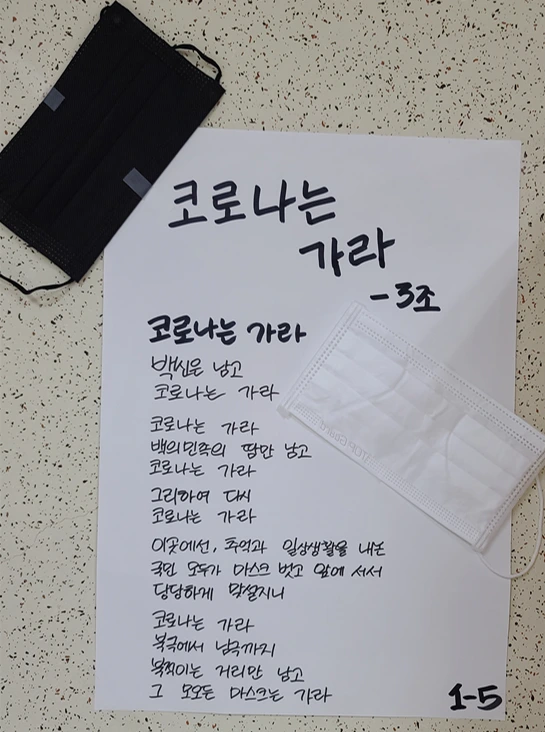 코로나는
가라
-3조
코로나는 가라
백신은 남고
코로나는 가라
코로나는 가라
백의민족의 땀만 남고
코로나는 가라
그리하여 다시
코로나는 가라
이곳에선, 추억과 일상생활을 내논
국민 모두가 마스크 벗고 앞에 서서
당당하게 맞설지니
코로나는 가라
북극에서 남극까지
북적이는 거리만 남고
그 모오든 마스크는 가라
1-5